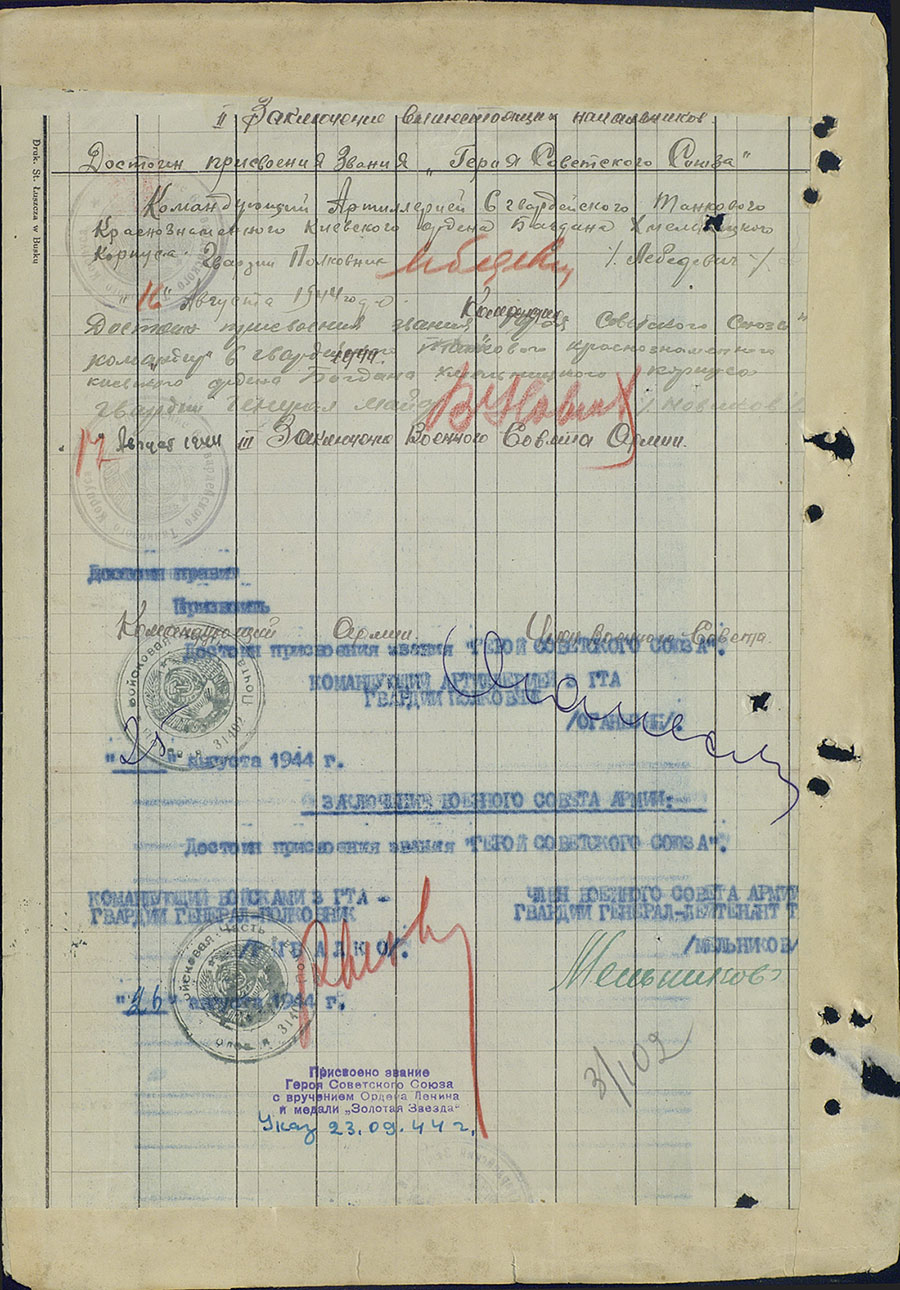 II Заключение вышестоящих начальников.
Достоин присвоения Звания "Героя Советского Союза"
Командующий Артиллерией 6 гвардейского Танкового
Краснознаменного Киевского ордена Багдана Хмельницкого
Корпуса. Гвардии Полковник /Лебедевич/
"16" Августа 1944 года.
Достоин присвоения звания Героя Советского Союза"
Командир
6 гвардейского танкового краснознаменного
1944
киевского ордена Богдана Хмельницкого корпуса
гвардии Генерал майор /Новиков/
"17" Август 1944 III Заключение Военного Совета Армии.
Достоин
Присвоить
Командующий Армии. Член военного Совета.
Достоин присвоения звания "ГЕРОЙ СОВЕТСКОГО СОЮЗА".
КОМАНДУЮЩИЙ АРТИЛЛЕРИЕЙ 3 ГТА
ГВАРДИИ ПОЛКОВНИК
"25" августа 1944 г.
ЗАКЛЮЧЕНИЕ ВОЕННОГО СОВЕТА АРМИИ:-
Достоин присвоения звания "ГЕРОЙ СОВЕТСКОГО СОЮЗА".
КОМАНДУЮЩИЙ ВОЙСКАМИ 3 ГТА - ЧЛЕН ВОЕННОГО СОВЕТА АРМИИ
ГВАРДИИ ГЕНЕРАЛ-ПОЛКОВНИК ГВАРДИИ ГЕНЕРАЛ-ЛЕЙТЕНАНТ Т
/РЫБАЛКО/. /МЕЛЬНИКОВ/
Мельников
"26" августа 1944 г.
3/102
Присвоено звание
Героя Советского Союза
с вручением Ордена Ленина
и медали „Золотая Звезда"
Указ 23.09.44 г.
Druk. St. Łuszcza w Busku